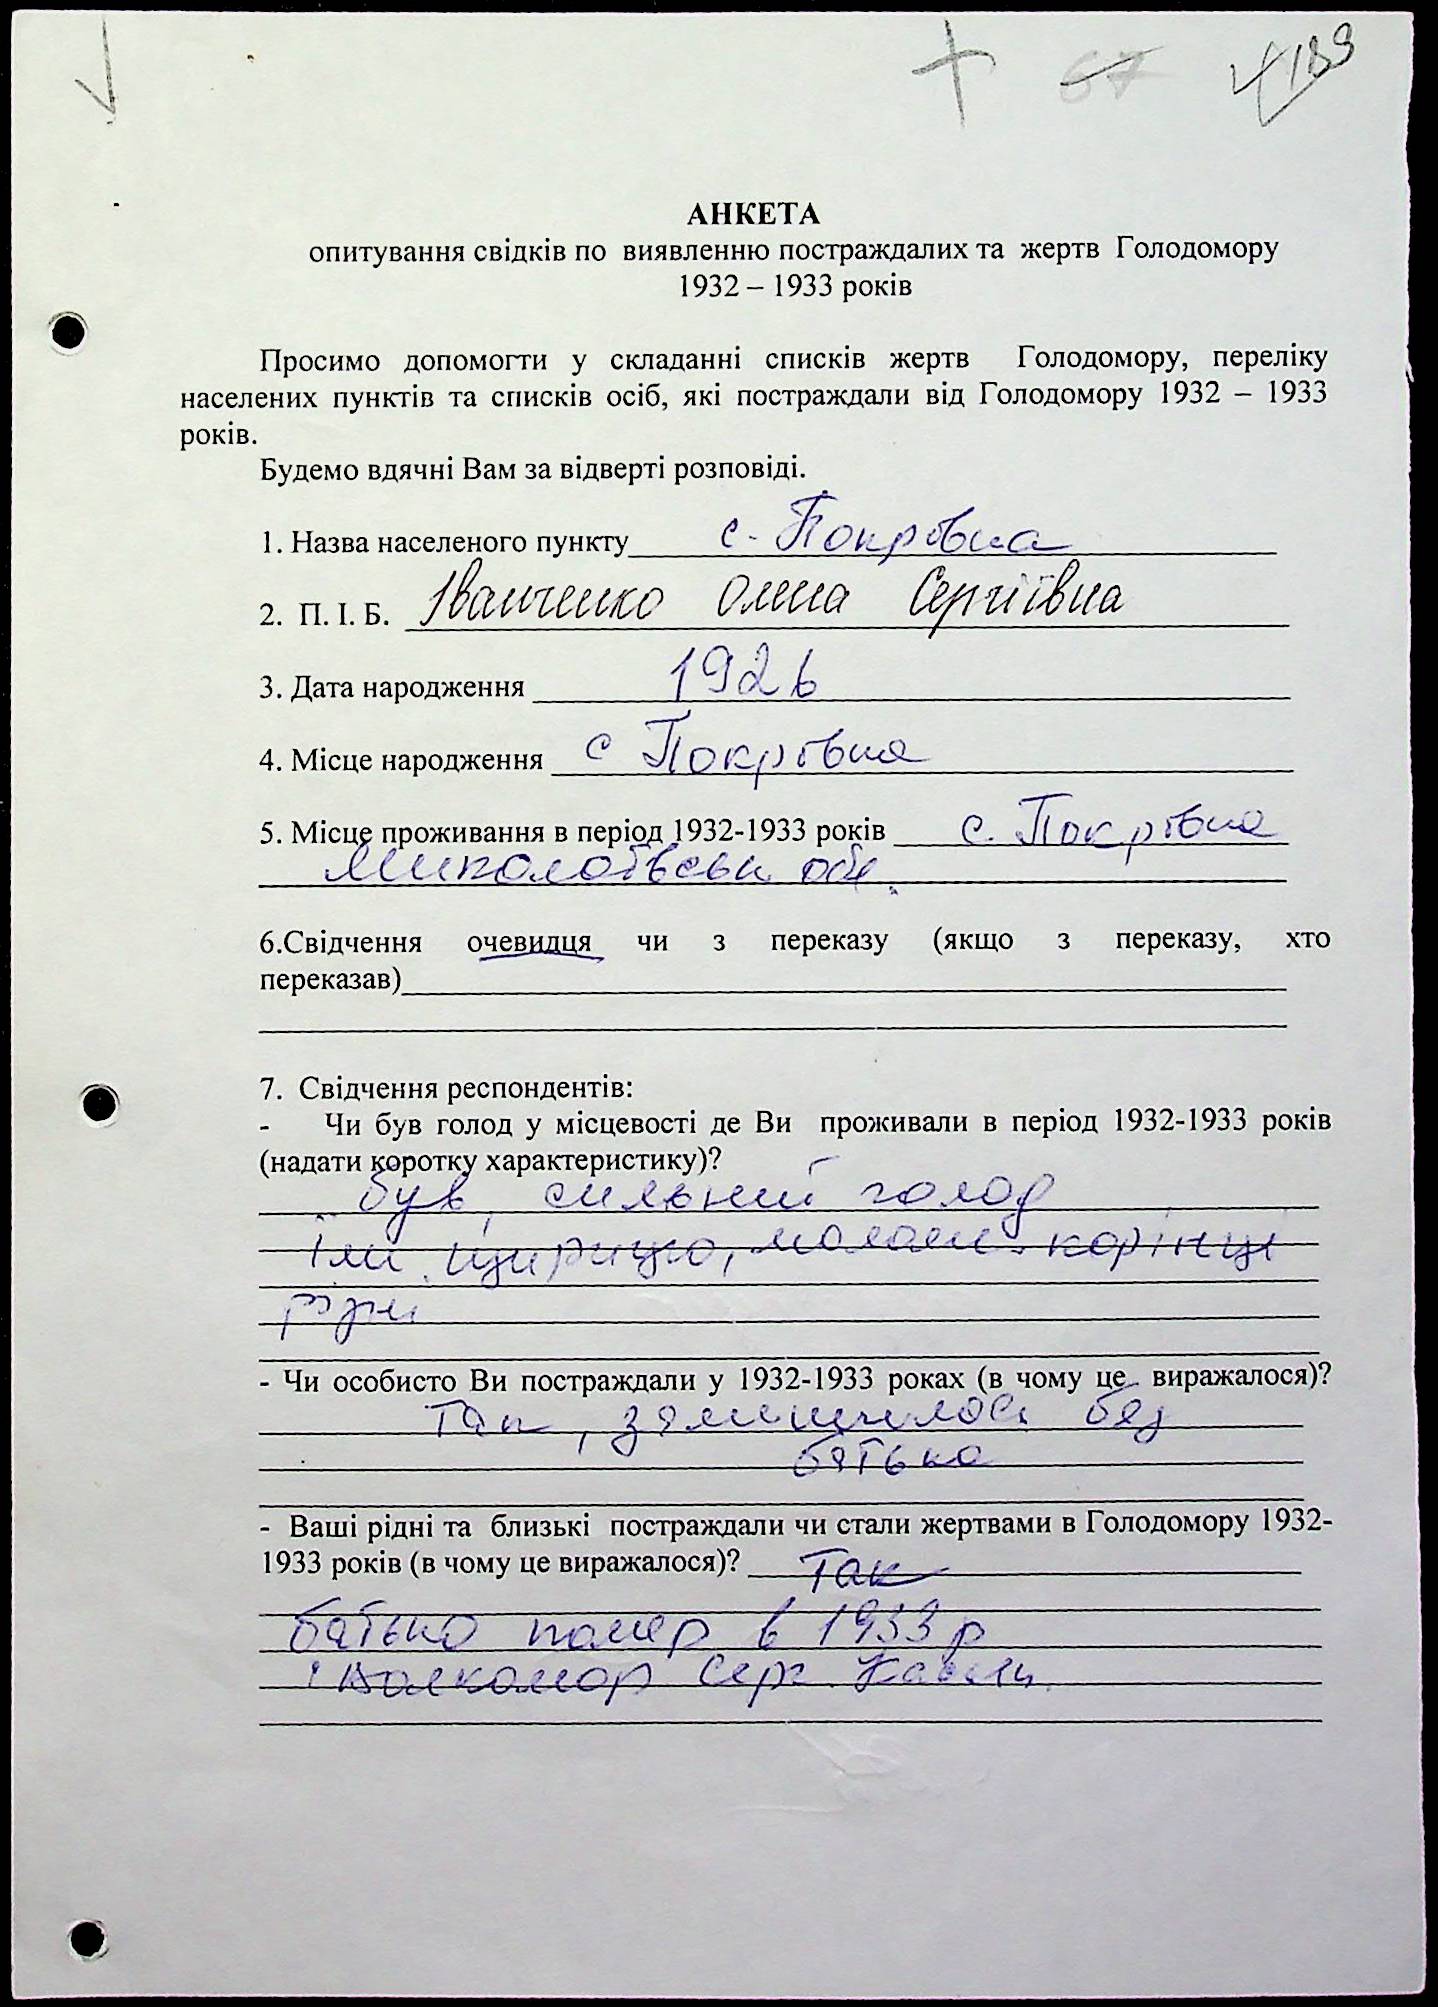 67 189
АНКЕТА
опитування свідків по виявленню постраждалих та жертв Голодомору
1932 – 1933 років
Просимо допомогти у складанні списків жертв Голодомору, переліку
населених пунктів та списків осіб, які постраждали від Голодомору 1932 – 1933
років.
Будемо вдячні Вам за відверті розповіді.
1. Назва населеного пункту с. Покрівка
2. П. І. Б. Іванченко Олена Сергіївна
3. Дата народження 1926
4. Місце народження с Покрівка
5. Місце проживання в період 1932-1933 років с. Покрівка
обл.
6.Свідчення очевидця чи з переказу (якщо з переказу, хто
переказав)
7. Свідчення респондентів:
- Чи був голод у місцевості де Ви проживали в період 1932-1933 років
(надати коротку характеристику)?
був, сильний голод
їли щирицю, корінці
- Чи особисто Ви постраждали у 1932-1933 роках (в чому це виражалося)?
Так, без
батька
- Ваші рідні та близькі постраждали чи стали жертвами в Голодомору 1932-
1933 років (в чому це виражалося)? Так
батько помер в 1933 р
Серг.